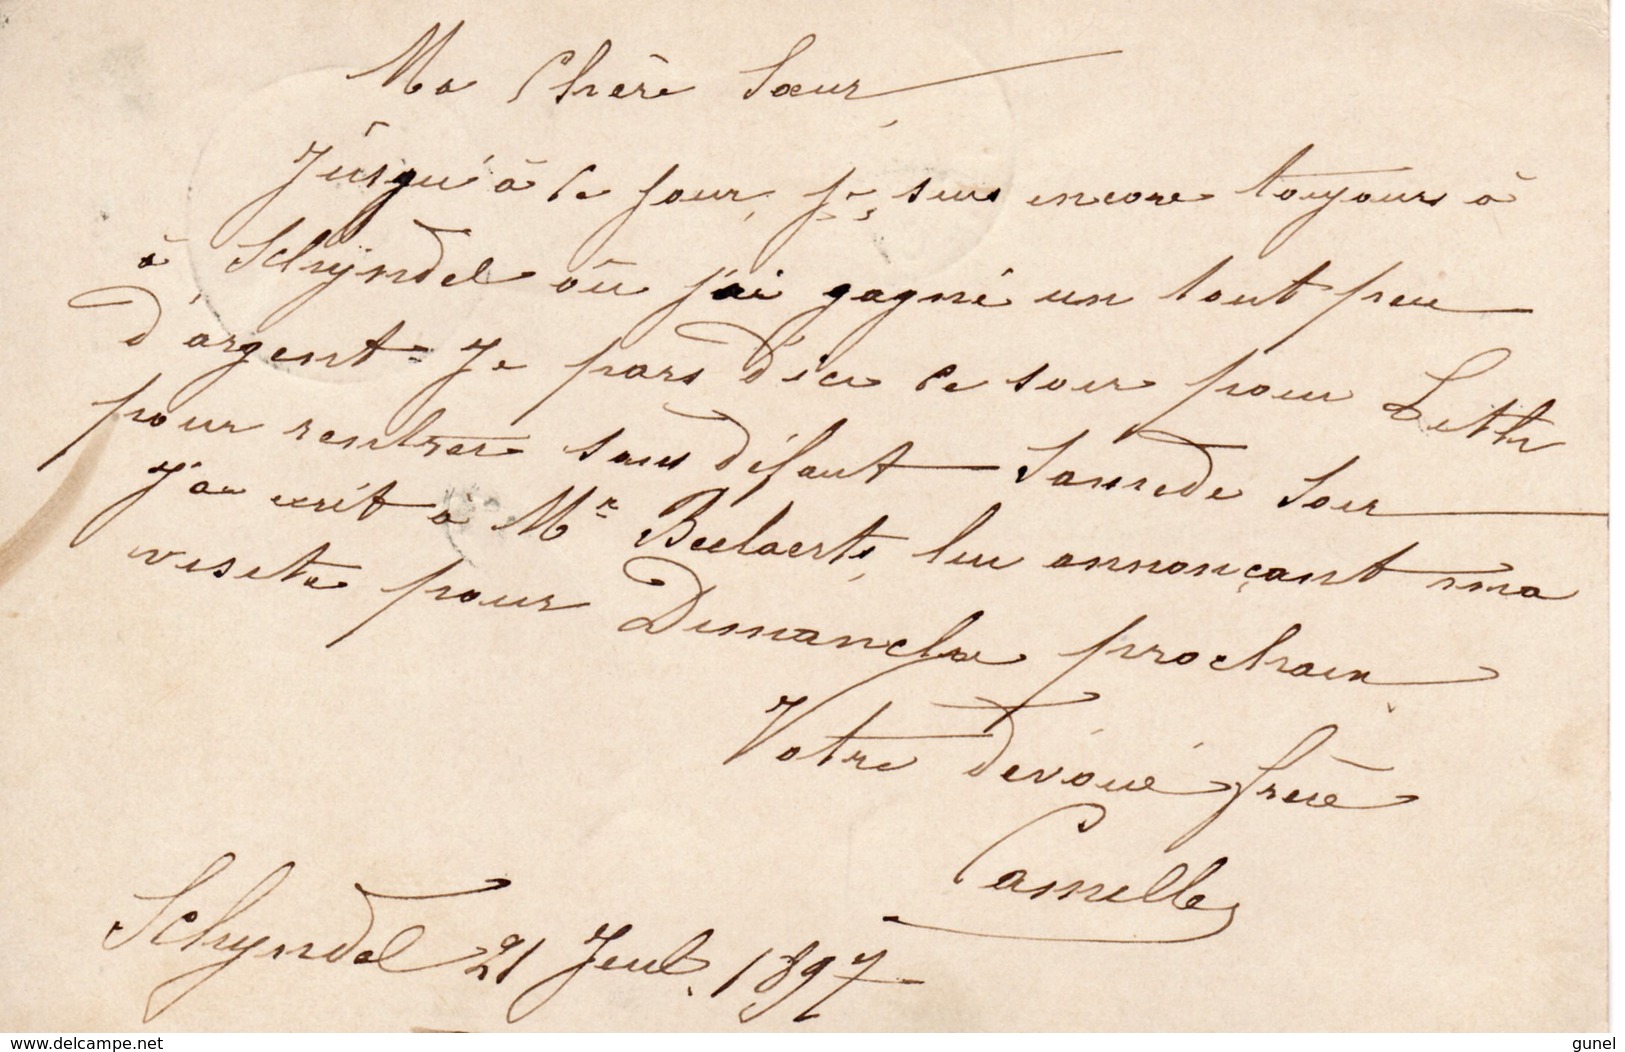 Ma Chère Sœur
Jusqu'à ce jour, je suis encore toujours à
à Schyndel où j'ai gagné un tout peu
d'argent. Je pars d'ici ce soir pour Lith
pour rentrer sans défaut Samedi soir
J'ai écrit à Mr Beelaerts, lui annonçant ma
visite pour Dimanche prochain
Votre dévoué frère
Camille
Schyndel 21 Juil. 1897
www.delcampe.net
gunel